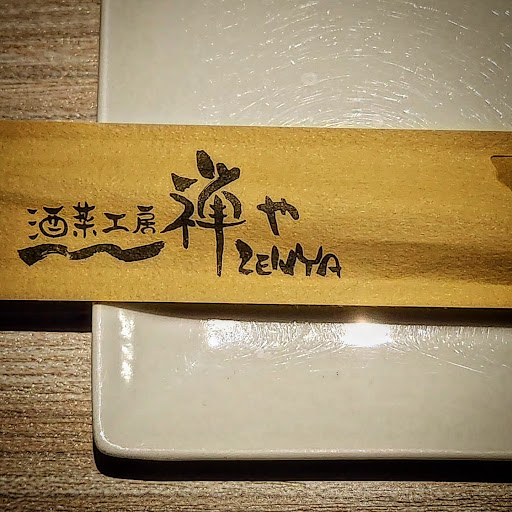 酒菜工房 禅や
ZENYA